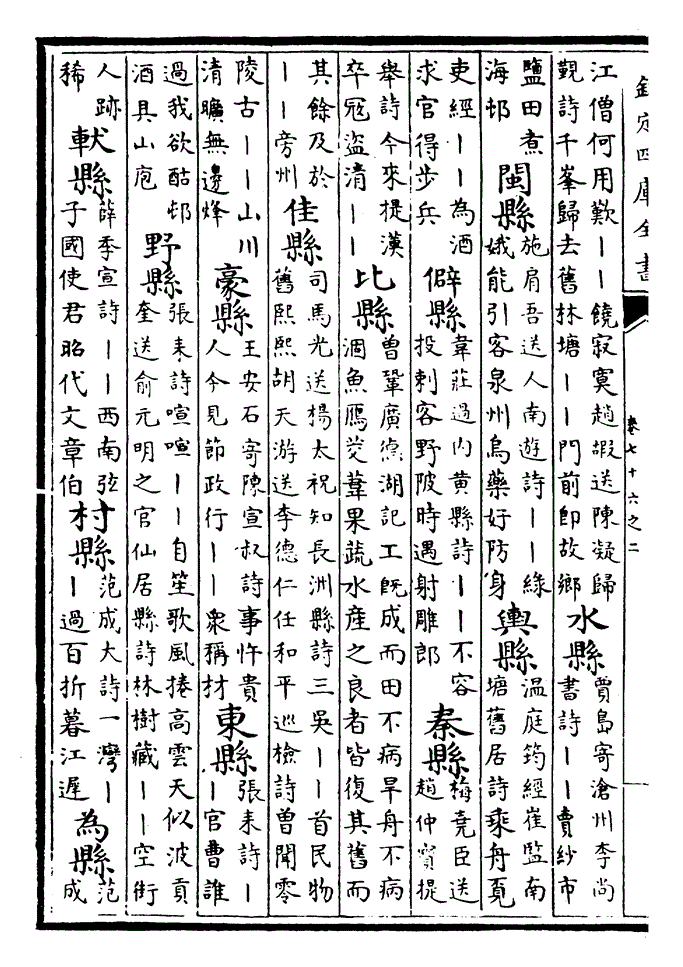 欽定四庫全書
卷七十六之二
江僧何用歎丨丨饒寂寞趙嘏送陳凝歸
覲詩千峯歸去舊林塘丨丨門前即故鄉
水縣
賈島寄滄州李尚
書詩丨丨賣紗市
鹽田煮
海邨
閩縣
施肩吾送人南遊詩丨丨緑
娥能引客泉州烏藥好防身
輿縣
温庭筠經崔監南
塘舊居詩乘舟覔
吏經丨丨為酒
求官得步兵
僻縣
韋莊過内黄縣詩丨丨不容
投刺客野陂時遇射雕郎
秦縣
梅堯臣送
趙仲寳提
舉詩今來提漢
卒冦盗清丨丨
比縣
曾鞏廣德湖記工既成而田不病旱舟不病
涸魚鴈茭葦果蔬水産之良者皆復其舊而
其餘及於
丨丨旁州
佳縣
司馬光送楊太祝知長洲縣詩三吳丨丨首民物
舊熙熙胡天游送李德仁任和平巡檢詩曾聞零
陵古丨丨山川
清曠無邊烽
豪縣
王安石寄陳宣叔詩事忤貴
人今見節政行丨丨衆稱材
東縣
張耒詩丨
丨官曹誰
過我欲酤邨
酒具山庖
野縣
張耒詩喧喧丨丨自笙歌風捲高雲天似波貢
奎送俞元明之官仙居縣詩林樹藏丨丨空街
人跡
稀
軑縣
薛季宣詩丨丨西南弦
子國使君昭代文章伯
村縣
范成大詩一灣丨
丨過百折暮江遲
為縣
范
成